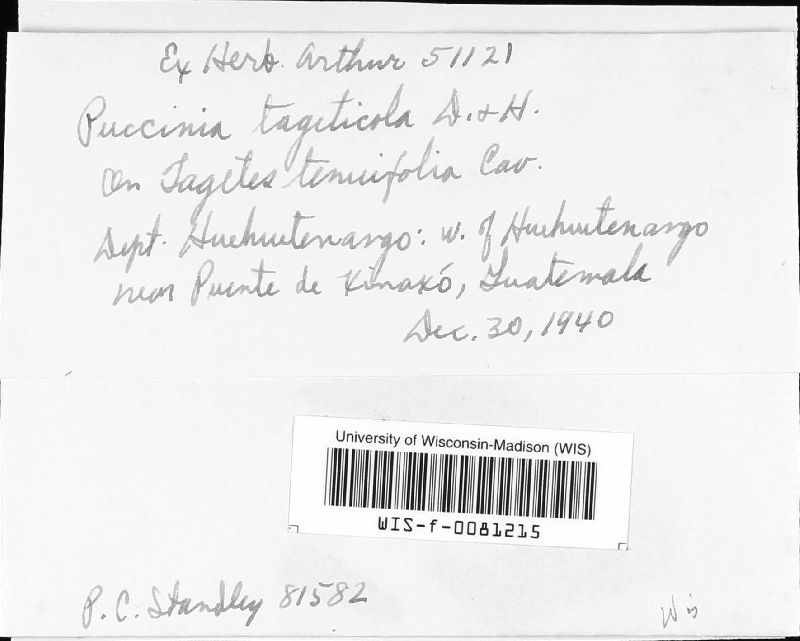 Ex Herb. Arthur 51121
Puccinia tageticola D. & H.
On Tagetes tenuifolia Cav.
Dept. Huehuetenango: w. of Huehuetenango
near Puente de Xinaxó, Guatemala
Dec. 30, 1940
University of Wisconsin-Madison (WIS)
WIS-f-0081215
P. C. Standley 81582
Wis